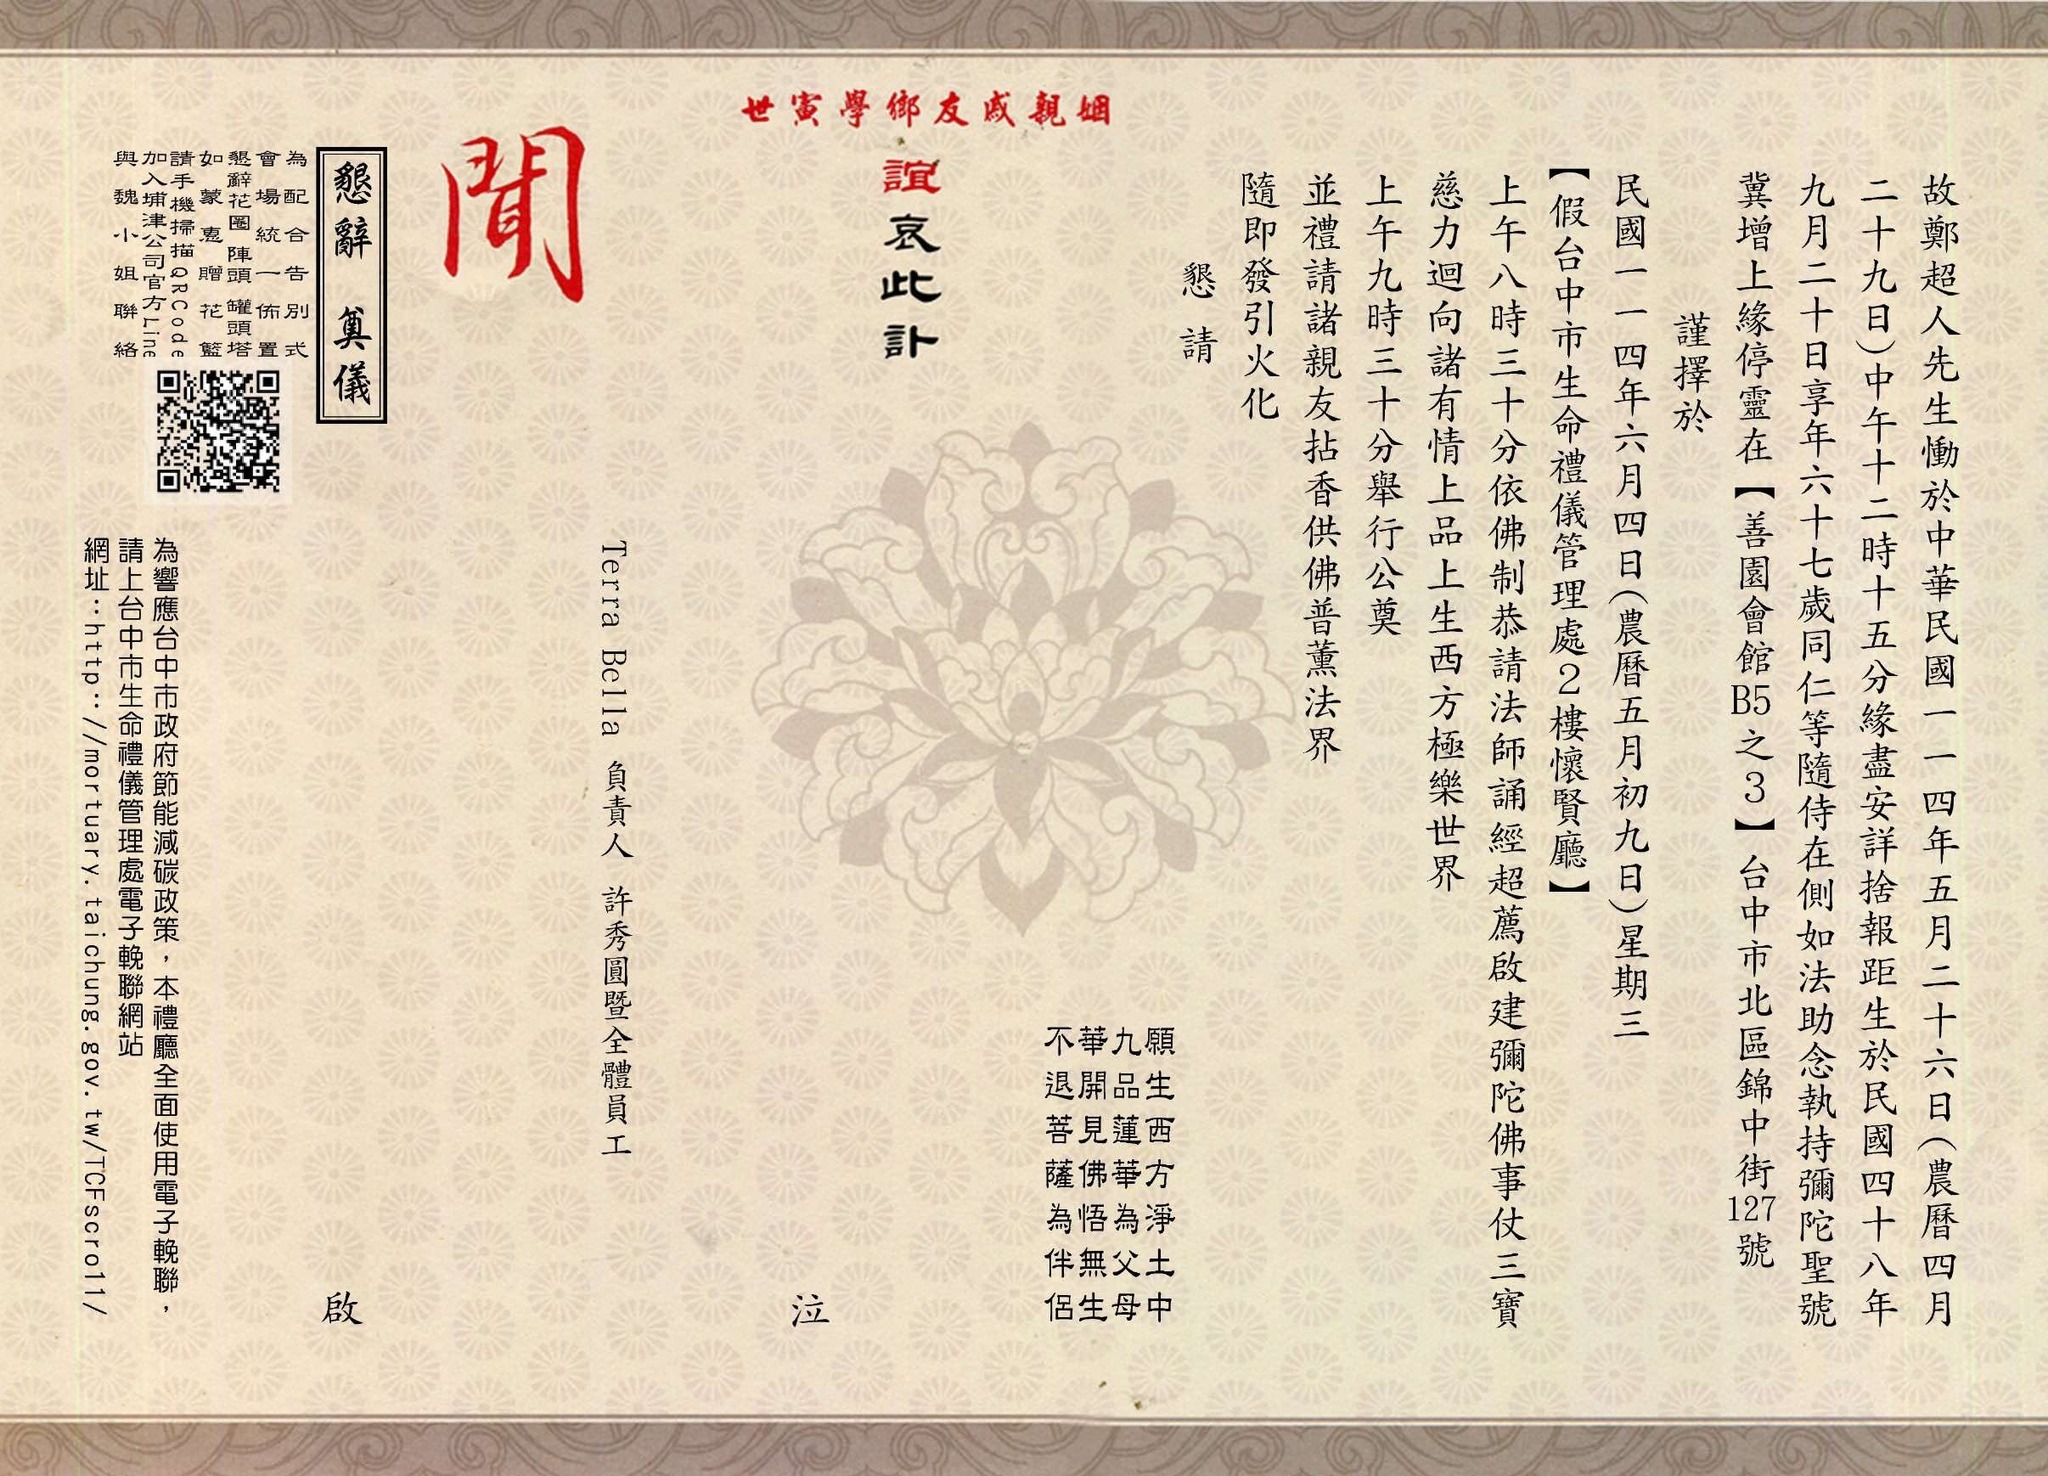 故鄭超人先生慟於中華民國一一四年五月二十六日(農曆四月
二十九日)中午十二時十五分緣盡安詳捨報距生於民國四十八年
九月二十日享年六十七歲同仁等隨侍在側如法助念執持彌陀聖號
冀增上緣停靈在【善園會館B5之3】台中市北區錦中街127號
謹擇於
民國一一四年六月四日(農曆五月初九日)星期三
【假台中市生命禮儀管理處2樓懷賢廳】
上午八時三十分依佛制恭請法師誦經超薦啟建彌陀佛事仗三寶
慈力迴向諸有情上品上生西方極樂世界
上午九時三十分舉行公奠
並禮請諸親友拈香供佛普薰法界
隨即發引火化
懇請
願生西方淨土中
九品蓮華為父母
華開見佛悟無生
不退菩薩為伴侶
姻親戚友鄉學寅世
誼哀此訃
泣
Terra Bella 負責人 許秀圓暨全體員工
聞
懇辭 奠儀
啟
為配合告別式
會場統一佈置
懇辭花圈 陣頭 罐頭塔
如蒙惠贈花籃
請手機掃描QRCode
加入埔津公司官方Line
與魏小姐聯絡
為響應台中市政府節能減碳政策，本禮廳全面使用電子輓聯，
請上台中市生命禮儀管理處電子輓聯網站
網址：http://mortuary.taichung.gov.tw/TCFscroll/